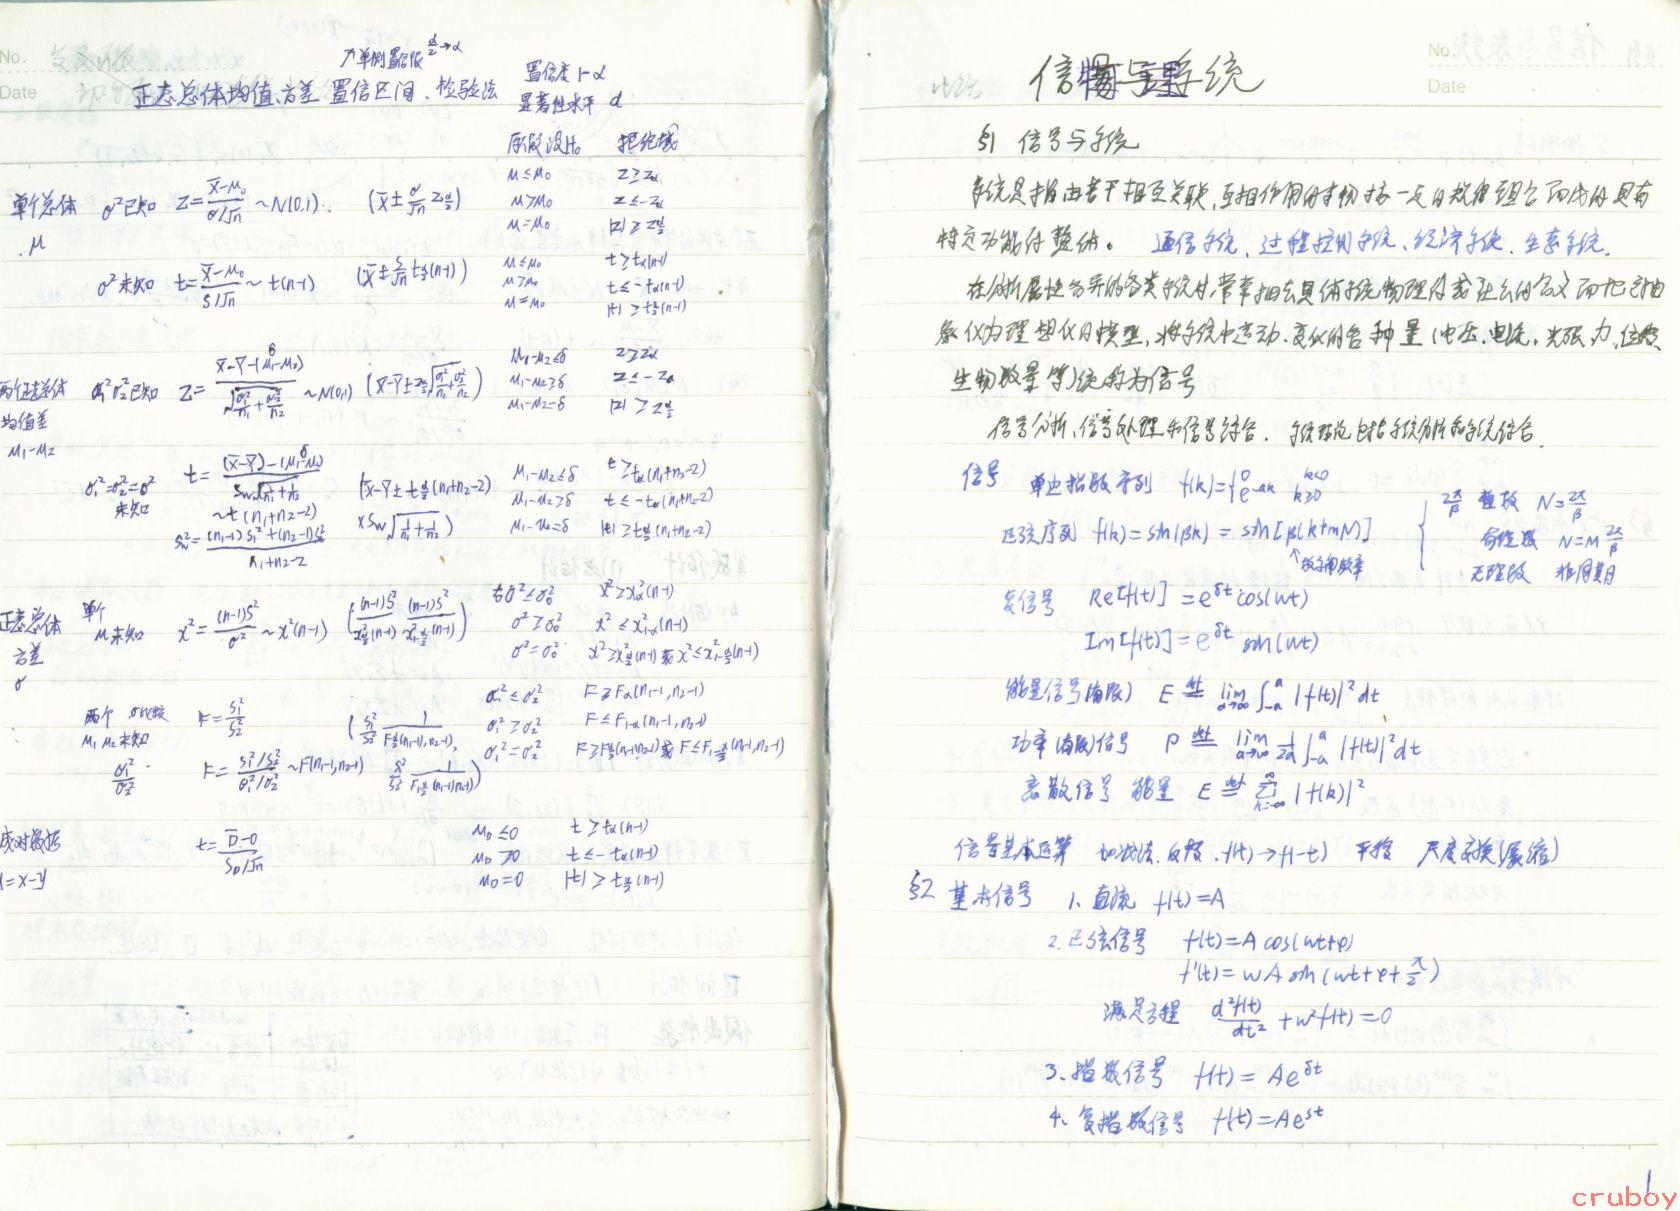 No.
Date
单侧置信限 α/2→α
正态总体均值、方差 置信区间、检验法
置信度 1-α
显著性水平 α
原假设H₀ 拒绝域
单个总体 μ
σ²已知 Z=(X̄-μ₀)/(σ/√n) ~N(0,1). (X̄±σ/√n Z_{α/2})
μ≤μ₀ Z≥Z_α
μ≥μ₀ Z≤-Z_α
μ=μ₀ |Z|≥Z_{α/2}
σ²未知 t=(X̄-μ₀)/(S/√n) ~ t(n-1) (X̄±S/√n t_{α/2}(n-1))
μ≤μ₀ t≥t_α(n-1)
μ≥μ₀ t≤-t_α(n-1)
μ=μ₀ |t|≥t_{α/2}(n-1)
两个正态总体
均值差
μ₁-μ₂
σ₁²σ₂²已知 Z=(X̄-Ȳ-(μ₁-μ₂))/√(σ₁²/n₁+σ₂²/n₂) ~N(0,1) (X̄-Ȳ±Z_{α/2}√(σ₁²/n₁+σ₂²/n₂))
μ₁-μ₂≤δ Z≥Z_α
μ₁-μ₂≥δ Z≤-Z_α
μ₁-μ₂=δ |Z|≥Z_{α/2}
σ₁²=σ₂²=σ²
未知
t=((X̄-Ȳ)-(μ₁-μ₂))/(S_w√(1/n₁+1/n₂))
~t(n₁+n₂-2)
S_w²=((n₁-1)S₁²+(n₂-1)S₂²)/(n₁+n₂-2)
(X̄-Ȳ±t_{α/2}(n₁+n₂-2)
×S_w√(1/n₁+1/n₂))
μ₁-μ₂≤δ t≥t_α(n₁+n₂-2)
μ₁-μ₂≥δ t≤-t_α(n₁+n₂-2)
μ₁-μ₂=δ |t|≥t_{α/2}(n₁+n₂-2)
正态总体
方差
σ
单个
μ未知 χ²=(n-1)S²/σ² ~χ²(n-1) ((n-1)S²/χ²_{α/2}(n-1) (n-1)S²/χ²_{1-α/2}(n-1))
σ²≤σ₀² χ²≥χ²_α(n-1)
σ²≥σ₀² χ²≤χ²_{1-α}(n-1)
σ²=σ₀² χ²≥χ²_{α/2}(n-1)或χ²≤χ²_{1-α/2}(n-1)
两个
μ₁μ₂未知
σ₁²/σ₂²
F=S₁²/S₂²
F=(S₁²/S₂²)/(σ₁²/σ₂²) ~F(n₁-1,n₂-1)
(S₁²/S₂² 1/F_{α/2}(n₁-1,n₂-1),
S₁²/S₂² 1/F_{1-α/2}(n₁-1,n₂-1))
σ₁²≤σ₂² F≥F_α(n₁-1,n₂-1)
σ₁²≥σ₂² F≤F_{1-α}(n₁-1,n₂-1)
σ₁²=σ₂² F≥F_{α/2}(n₁-1,n₂-1)或F≤F_{1-α/2}(n₁-1,n₂-1)
成对数据
t=(D̄-0)/(S_D/√n)
μ_D≤0 t≥t_α(n-1)
μ_D≥0 t≤-t_α(n-1)
μ_D=0 |t|≥t_{α/2}(n-1)
No.
Date
§1 信号与系统
系统是指由若干相互关联,互相作用的事物按一定的规律组合而成的具有
特定功能的整体。 通信系统、过程控制系统、经济系统、生态系统.
在分析属性各异的各类系统时,常常抽去具体系统物理的或社会的含义而把它抽
象化为理想化的模型,将系统中运动、变化的各种量(电压、电流、光强、力、位移、
生物数量等)统称为信号
信号分析、信号处理和信号综合. 系统理论包括系统分析和系统综合.
信号 单边指数序列 f(k)={0 k<0 e^{-ak} k≥0
正弦序列 f(k)=sin(βk)=sin[β(k+mN)]
↑数字角频率
2π/β 整数 N=2π/β
有理数 N=M 2π/β
无理数 非周期
复信号 Re[f(t)]=e^{δt}cos(wt)
Im[f(t)]=e^{δt} sin(wt)
能量信号(有限) E def= lim_{a→∞}∫_{-a}^{a}|f(t)|²dt
功率(有限)信号 P def= lim_{a→∞} 1/2a ∫_{-a}^{a}|f(t)|²dt
离散信号 能量 E def= Σ_{k=-∞}^{∞}|f(k)|²
信号基本运算 加减法、反转. f(t)→f(-t) 平移 尺度变换(展缩)
§2 基本信号 1、直流 f(t)=A
2、正弦信号 f(t)=A cos(wt+φ)
f'(t)=wA sin(wt+φ+π/2)
满足方程 d²f(t)/dt²+w²f(t)=0
3、指数信号 f(t)=Ae^{δt}
4、复指数信号 f(t)=Ae^{st}
1
cruboy